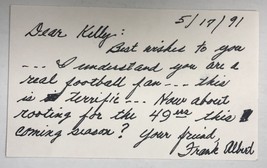 5/17/91
Dear Kelly:
Best wishes to you
--- I understand you are a
real football fan --- this
is terrific --- How about
rooting for the 49ers this
coming season? Your friend,
Frank Albert